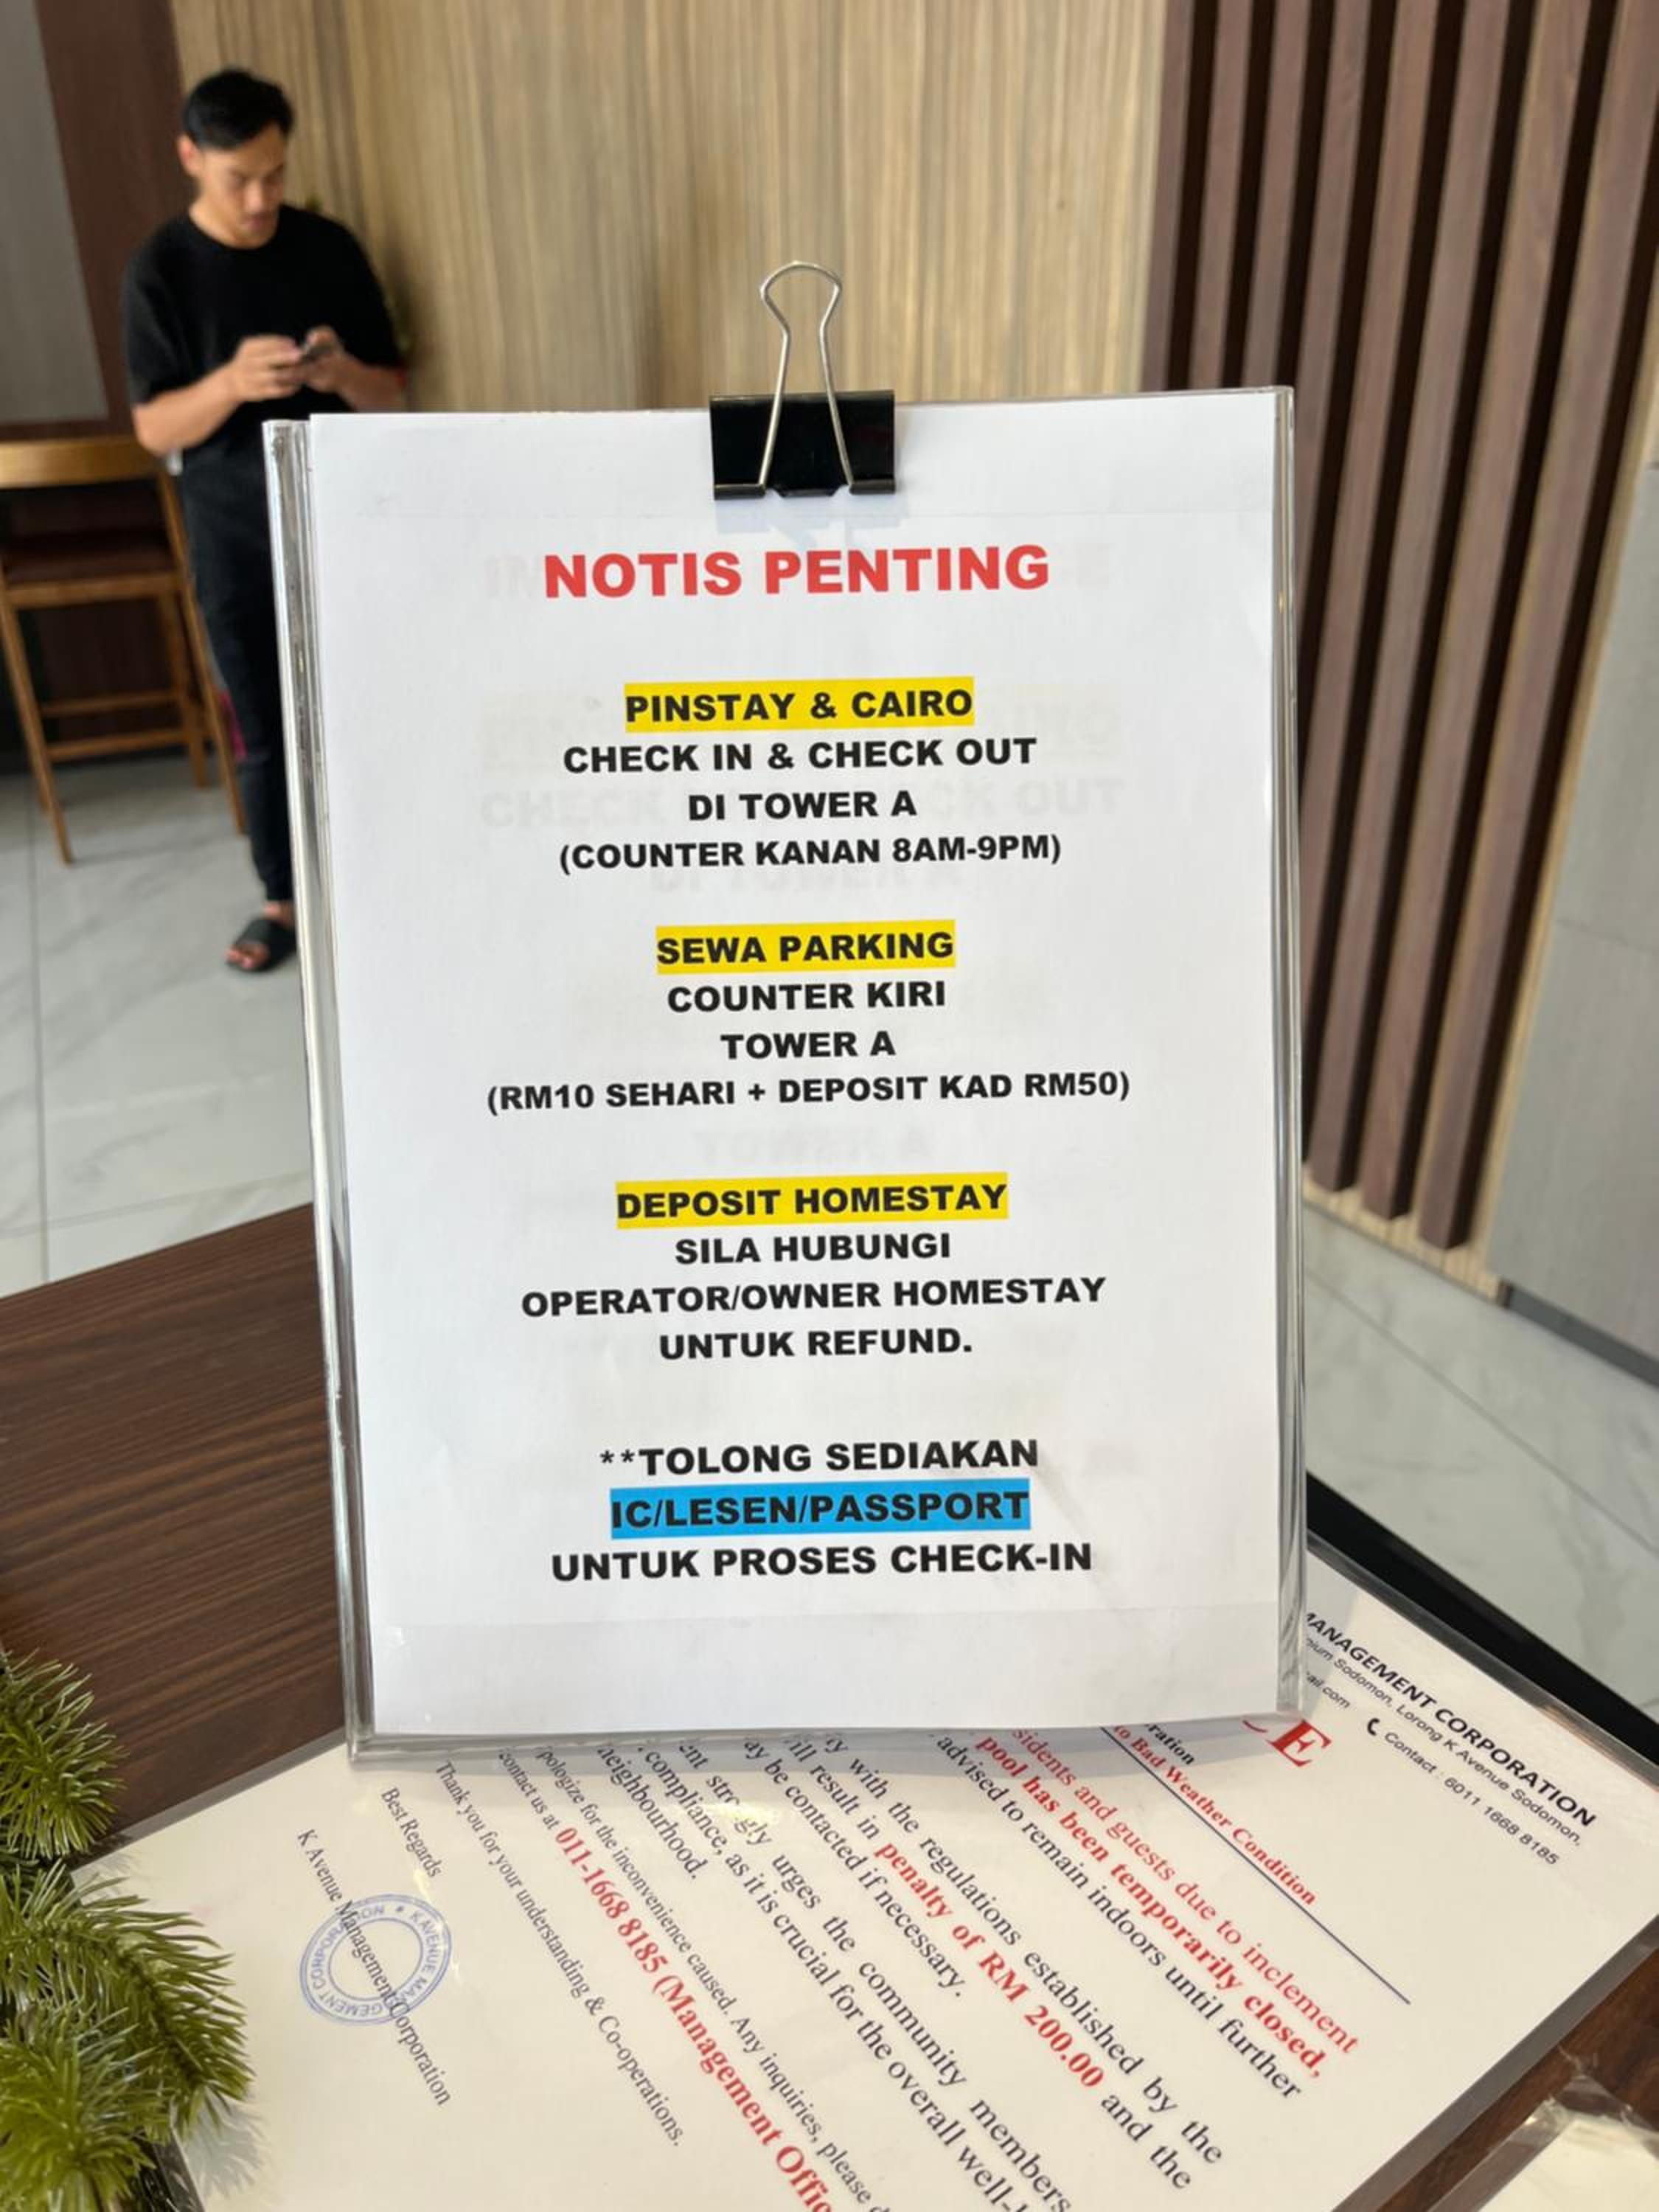 NOTIS PENTING
PINSTAY & CAIRO
CHECK IN & CHECK OUT
DI TOWER A
(COUNTER KANAN 8AM-9PM)
SEWA PARKING
COUNTER KIRI
TOWER A
(RM10 SEHARI + DEPOSIT KAD RM50)
DEPOSIT HOMESTAY
SILA HUBUNGI
OPERATOR/OWNER HOMESTAY
UNTUK REFUND.
**TOLONG SEDIAKAN
IC/LESEN/PASSPORT
UNTUK PROSES CHECK-IN
MANAGEMENT CORPORATION
Sodomon, Lorong K Avenue Sodomon,
Contact : 6011 1668 8185
to Bad Weather Condition
and guests due to inclement
pool has been temporarily closed,
advised to remain indoors until further
with the regulations established by the
result in penalty of RM 200.00 and the
be contacted if necessary.
urges the community members
compliance, as it is crucial for the overall
neighbourhood.
for the inconvenience caused. Any inquiries, please
contact us at 011-1668 8185 (Management
Thank you for your understanding & Co-operations.
Best Regards
K Avenue Management Corporation
K AVENUE MANAGEMENT CORPORATION